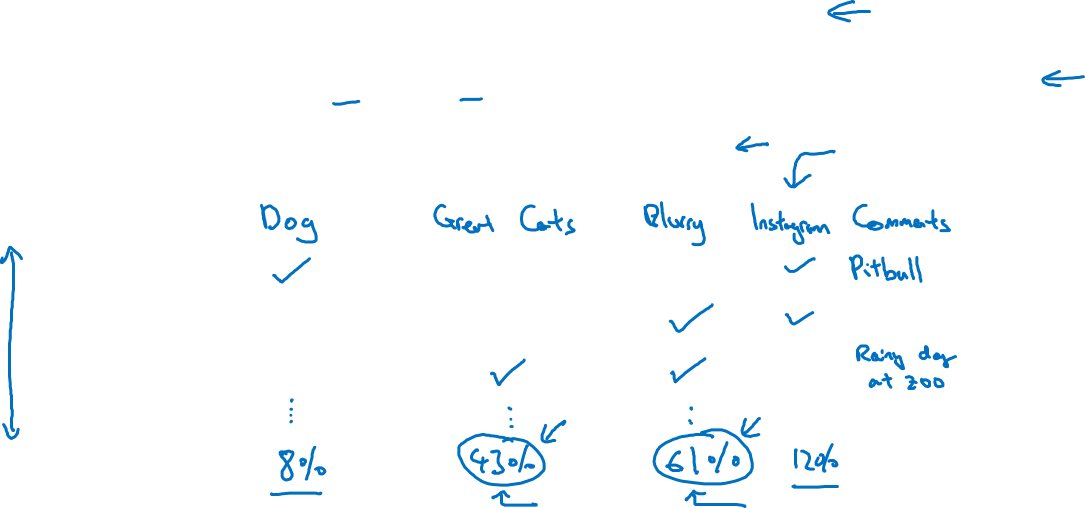 Dog Great Cats Blurry Instagram Comments
✓ ✓ Pitbull
✓ ✓
✓ ✓ Rainy day
at zoo
⋮ ⋮ ⋮
8% 43% 61% 12%